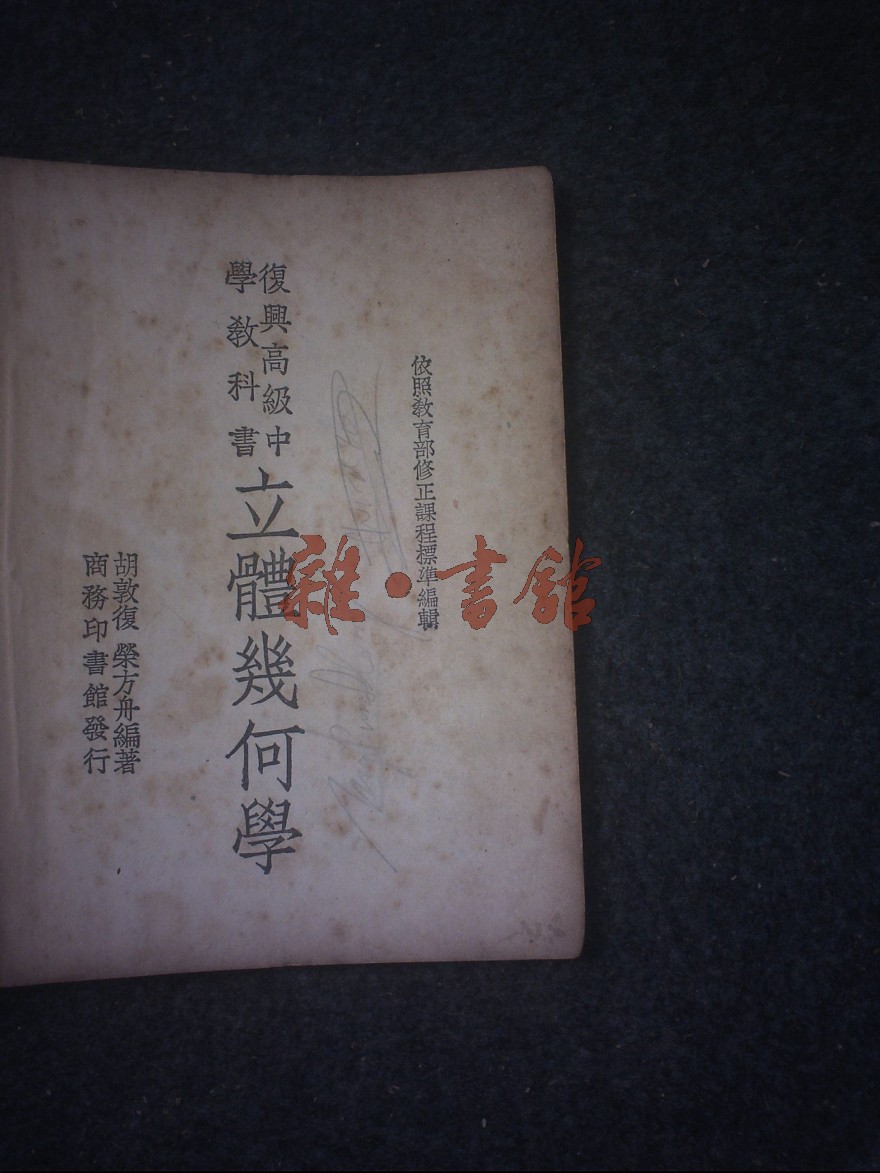 依照敎育部修正課程標準編輯
復興高級中
學敎科書
立體幾何學
胡敦復 榮方舟編著
商務印書館發行
雜·書館